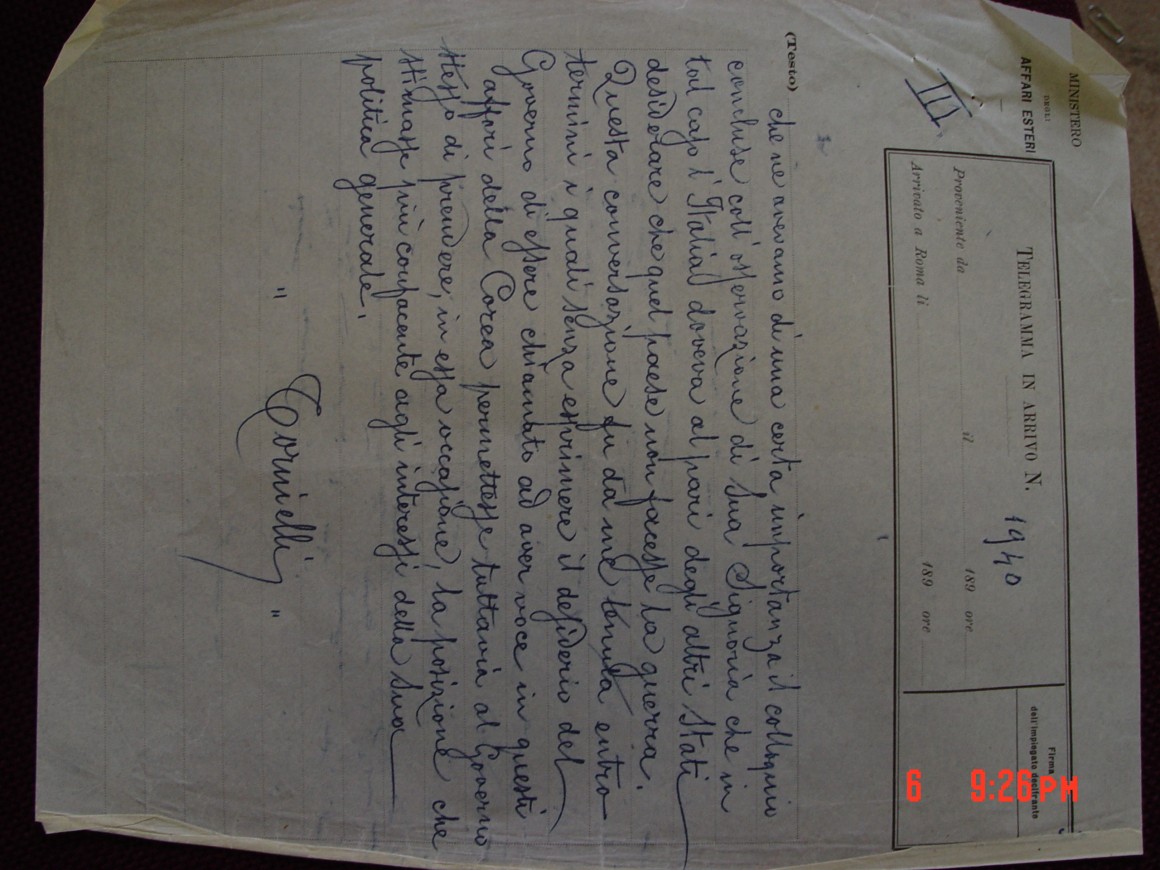 MINISTERO
DEGLI
AFFARI ESTERI
III
TELEGRAMMA IN ARRIVO N. 1940
Proveniente da il 189 ore
Arrivato a Roma li 189 ore
Firma
dell'impiegato decifrante
(Testo)
che ne avevano di una certa importanza il colloquio
concluse coll'osservazione di Sua Signoria che in
tal caso l'Italia doveva al pari degli altri Stati
desiderare che quel paese non facesse la guerra.
Questa conversazione fu da me tenuta entro
termini i quali senza esprimere il desiderio del
Governo di essere chiamato ad aver voce in questi
affari della Corea permettesse tuttavia al Governo
stesso di prendere, in essa occasione, la posizione che
stimasse più confacente agli interessi della sua
politica generale.
" Tornielli "
6 9:26PM